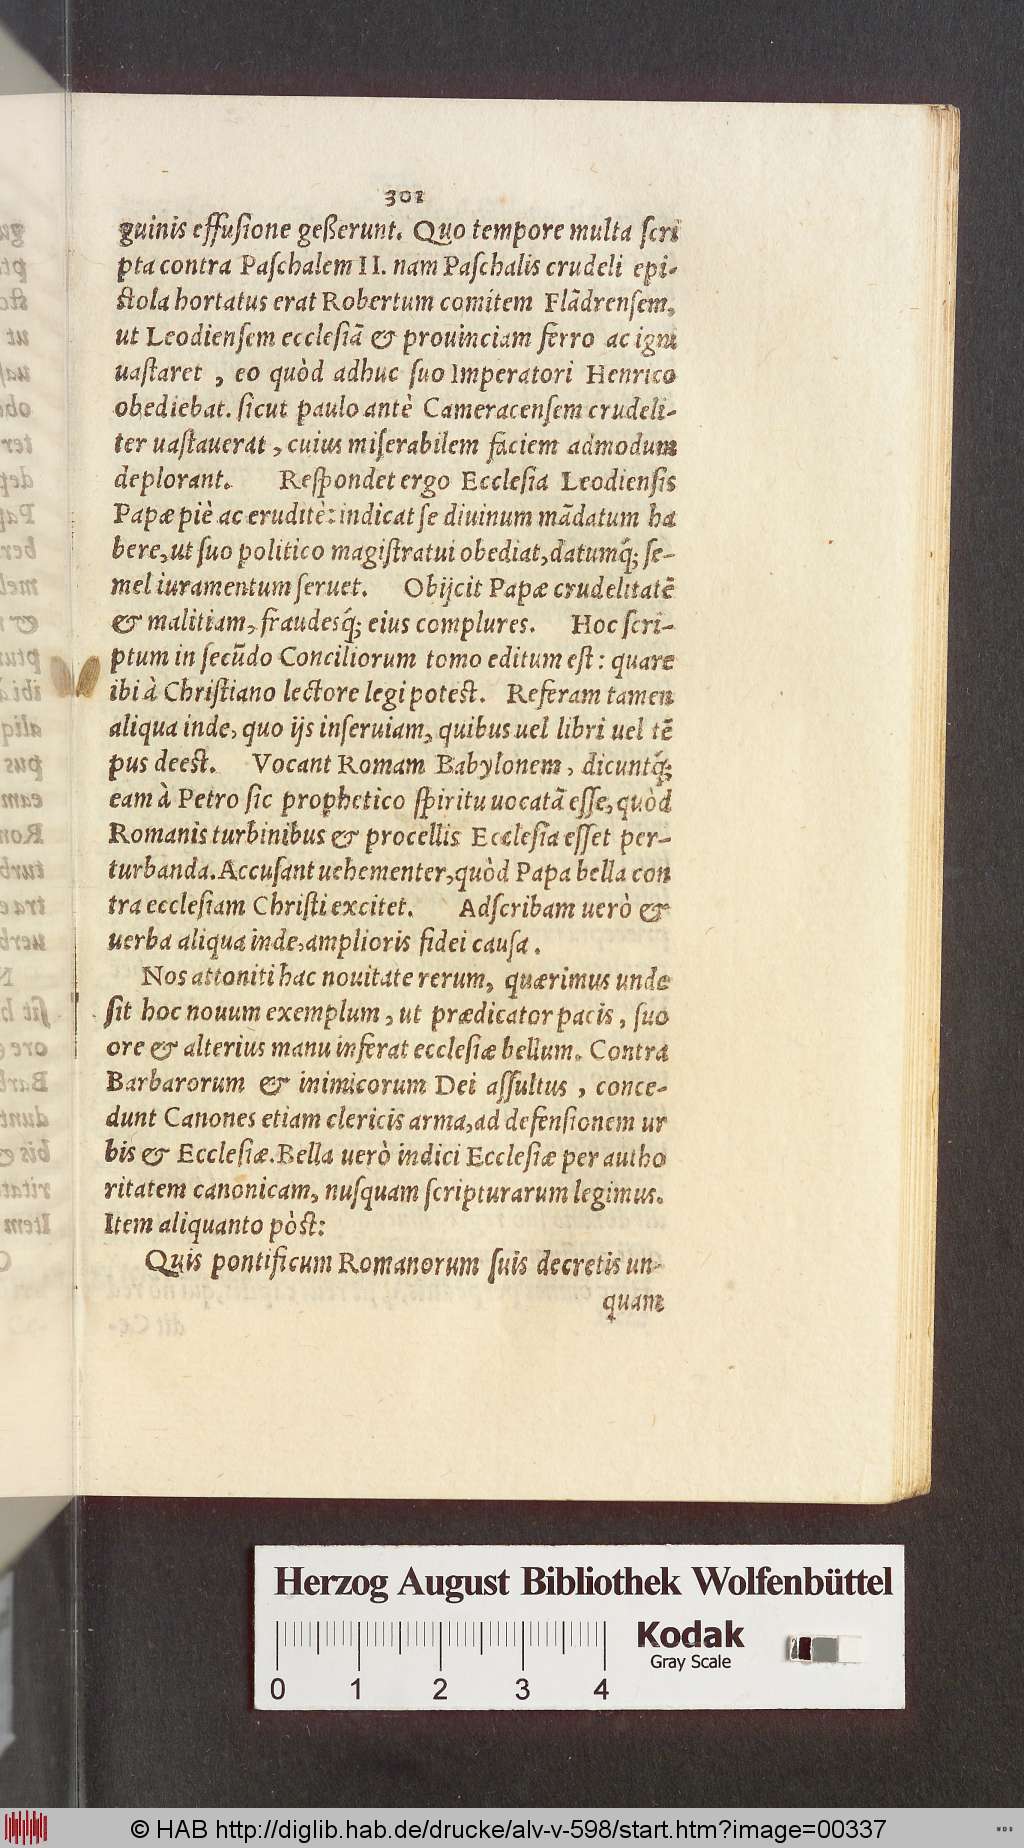 301
guinis effuſione geßerunt. Quo tempore multa ſcri
pta contra Paſchalem II. nam Paſchalis crudeli epi-
ſtola hortatus erat Robertum comitem Flãdrenſem,
ut Leodienſem eccleſiã & prouinciam ferro ac igni
uaſtaret, eo quòd adhuc ſuo Imperatori Henrico
obediebat. ſicut paulo antè Cameracenſem crudeli-
ter uaſtauerat, cuius miſerabilem faciem admodum
deplorant. Reſpondet ergo Eccleſia Leodienſis
Papæ piè ac eruditè: indicat ſe diuinum mãdatum ha
bere, ut ſuo politico magiſtratui obediat, datumq́; ſe-
mel iuramentum ſeruet. Obijcit Papæ crudelitatẽ
& malitiam, fraudesq́; eius complures. Hoc ſcri-
ptum in ſecũdo Conciliorum tomo editum eſt: quare
ibi à Chriſtiano lectore legi poteſt. Referam tamen
aliqua inde, quo ijs inſeruiam, quibus uel libri uel tẽ
pus deeſt. Vocant Romam Babylonem, dicuntq́;
eam à Petro ſic prophetico ſpiritu uocatã eſſe, quòd
Romanis turbinibus & procellis Eccleſia eſſet per-
turbanda. Accuſant uehementer, quòd Papa bella con
tra eccleſiam Chriſti excitet. Adſcribam uerò &
uerba aliqua inde, amplioris fidei cauſa.
Nos attoniti hac nouitate rerum, quærimus unde
ſit hoc nouum exemplum, ut prædicator pacis, ſuo
ore & alterius manu inferat eccleſiæ bellum. Contra
Barbarorum & inimicorum Dei aſſultus, conce-
dunt Canones etiam clericis arma, ad defenſionem ur
bis & Eccleſiæ. Bella uerò indici Eccleſiæ per autho
ritatem canonicam, nuſquam ſcripturarum legimus.
Item aliquanto pòſt:
Quis pontificum Romanorum ſuis decretis un-
quam
Herzog August Bibliothek Wolfenbüttel
Kodak
Gray Scale
0 1 2 3 4
© HAB http://diglib.hab.de/drucke/alv-v-598/start.htm?image=00337